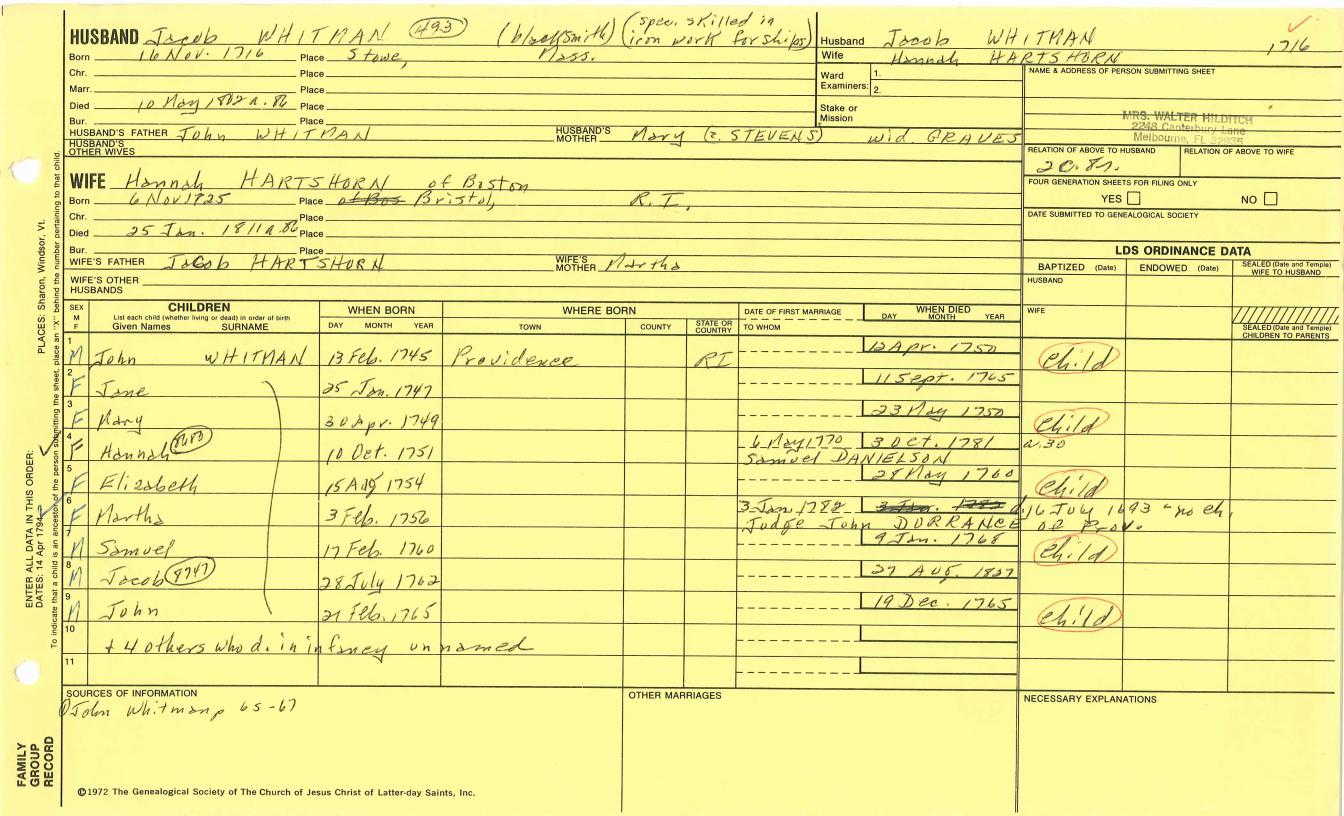 HUSBAND Jacob WHITMAN 493 (blacksmith) (spec. skilled in iron work for ships)
Born 16 Nov. 1716 Place Stowe, Mass.
Chr. Place
Marr. Place
Died 10 May 1802 a. 86 Place
Bur. Place
HUSBAND'S FATHER John WHITMAN HUSBAND'S MOTHER Mary (z. STEVENS) wid. GRAVES
HUSBAND'S OTHER WIVES
WIFE Hannah HARTSHORN of Boston
Born 6 Nov 1725 Place of Bos Bristol, R.I.
Chr. Place
Died 25 Jan. 1811 a. 86 Place
Bur. Place
WIFE'S FATHER Jacob HARTSHORN WIFE'S MOTHER Martha
WIFE'S OTHER HUSBANDS
Husband Jacob WHITMAN 1716
Wife Hannah HARTSHORN
Ward Examiners: 1.
2.
Stake or Mission
NAME & ADDRESS OF PERSON SUBMITTING SHEET
MRS. WALTER HILDITCH
2248 Canterbury Lane
Melbourne, FL 32935
RELATION OF ABOVE TO HUSBAND RELATION OF ABOVE TO WIFE
FOUR GENERATION SHEETS FOR FILING ONLY
YES NO
DATE SUBMITTED TO GENEALOGICAL SOCIETY
LDS ORDINANCE DATA
BAPTIZED (Date) ENDOWED (Date) SEALED (Date and Temple) WIFE TO HUSBAND
HUSBAND
WIFE
SEALED (Date and Temple) CHILDREN TO PARENTS
SEX M F
CHILDREN
List each child (whether living or dead) in order of birth
Given Names SURNAME
WHEN BORN
DAY MONTH YEAR
WHERE BORN
TOWN COUNTY STATE OR COUNTRY
DATE OF FIRST MARRIAGE
TO WHOM
WHEN DIED
DAY MONTH YEAR
1 M John WHITMAN 13 Feb. 1745 Providence RI 12 Apr. 1750 child
2 F Jane 25 Jan. 1747 11 Sept. 1765
3 F Mary 30 Apr. 1749 23 May 1750 child
4 F Hannah 10 Oct. 1751 6 May 1770 3 Oct. 1781 a. 30
Samuel DANIELSON
5 F Elizabeth 15 Aug 1754 28 May 1760 child
6 F Martha 3 Feb. 1756 3 Jan. 1782 3 Jan. 1782 d. 16 July 1693 "no ch.
Judge John DORRANCE of Prov.
7 M Samuel 17 Feb. 1760 9 Jan. 1768 child
8 M Jacob 8747 28 July 1762 27 Aug. 1827
9 M John 21 Feb. 1765 19 Dec. 1765 child
10 + 4 others who d. in infancy unnamed
11
SOURCES OF INFORMATION
John Whitman p 65-67
OTHER MARRIAGES
NECESSARY EXPLANATIONS
©1972 The Genealogical Society of The Church of Jesus Christ of Latter-day Saints, Inc.
FAMILY GROUP RECORD
ENTER ALL DATA IN THIS ORDER:
DATES: 14 Apr 1794 PLACES: Sharon, Windsor, Vt.
To indicate that a child is an ancestor of the person submitting the sheet, place an "X" behind the number pertaining to that child.